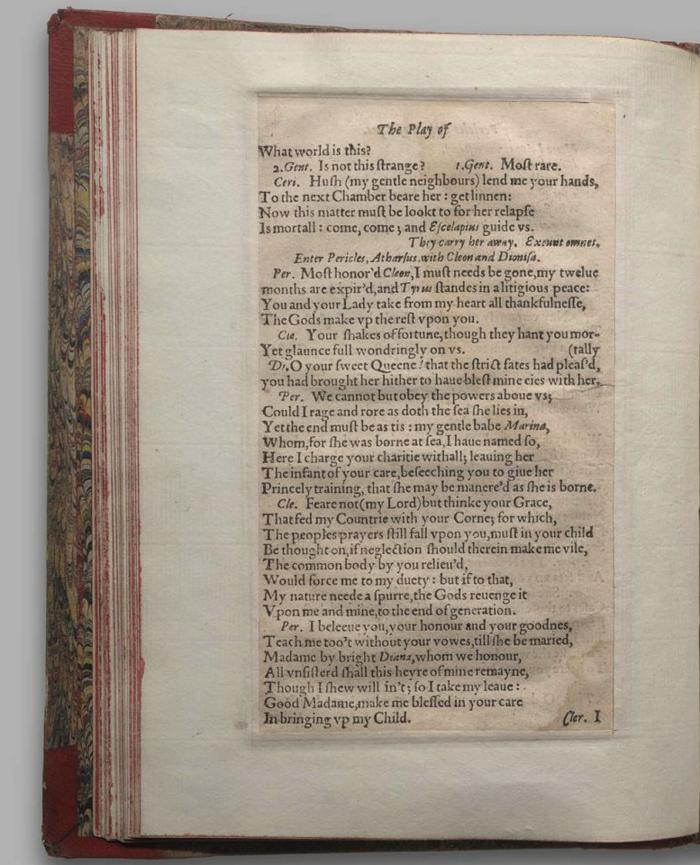 The Play of
What world is this?
2.Gent. Is not this ſtrange? 1.Gent. Moſt rare.
Ceri. Huſh (my gentle neighbours) lend me your hands,
To the next Chamber beare her: get linnen:
Now this matter muſt be lookt to for her relapſe
Is mortall: come, come; and Eſcelapius guide vs.
They carry her away. Exeunt omnes.
Enter Pericles, Atharſus, with Cleon and Dioniſa.
Per. Moſt honor'd Cleon, I muſt needs be gone, my twelue
months are expir'd, and Tyrus ſtandes in a litigious peace:
You and your Lady take from my heart all thankfulneſſe,
The Gods make vp the reſt vpon you.
Cle. Your ſhakes of fortune, though they hant you mor-
Yet glaunce full wondringly on vs. (tally
Di. O your ſweet Queene! that the ſtrict fates had pleaſ'd,
you had brought her hither to haue bleſt mine eies with her.
Per. We cannot but obey the powers aboue vs;
Could I rage and rore as doth the ſea ſhe lies in,
Yet the end muſt be as tis: my gentle babe Marina,
Whom, for ſhe was borne at ſea, I haue named ſo,
Here I charge your charitie withall; leauing her
The infant of your care, beſeeching you to giue her
Princely training, that ſhe may be manere'd as ſhe is borne.
Cle. Feare not (my Lord) but thinke your Grace,
That fed my Countrie with your Corne; for which,
The peoples prayers ſtill fall vpon you, muſt in your child
Be thought on, if neglection ſhould therein make me vile,
The common body by you relieu'd,
Would force me to my duety: but if to that,
My nature neede a ſpurre, the Gods reuenge it
Vpon me and mine, to the end of generation.
Per. I beleeue you, your honour and your goodnes,
Teach me too't without your vowes, till ſhe be maried,
Madame by bright Diana, whom we honour,
All vnſiſterd ſhall this heyre of mine remayne,
Though I ſhew will in't; ſo I take my leaue:
Good Madame, make me bleſſed in your care
In bringing vp my Child.
Cler. I